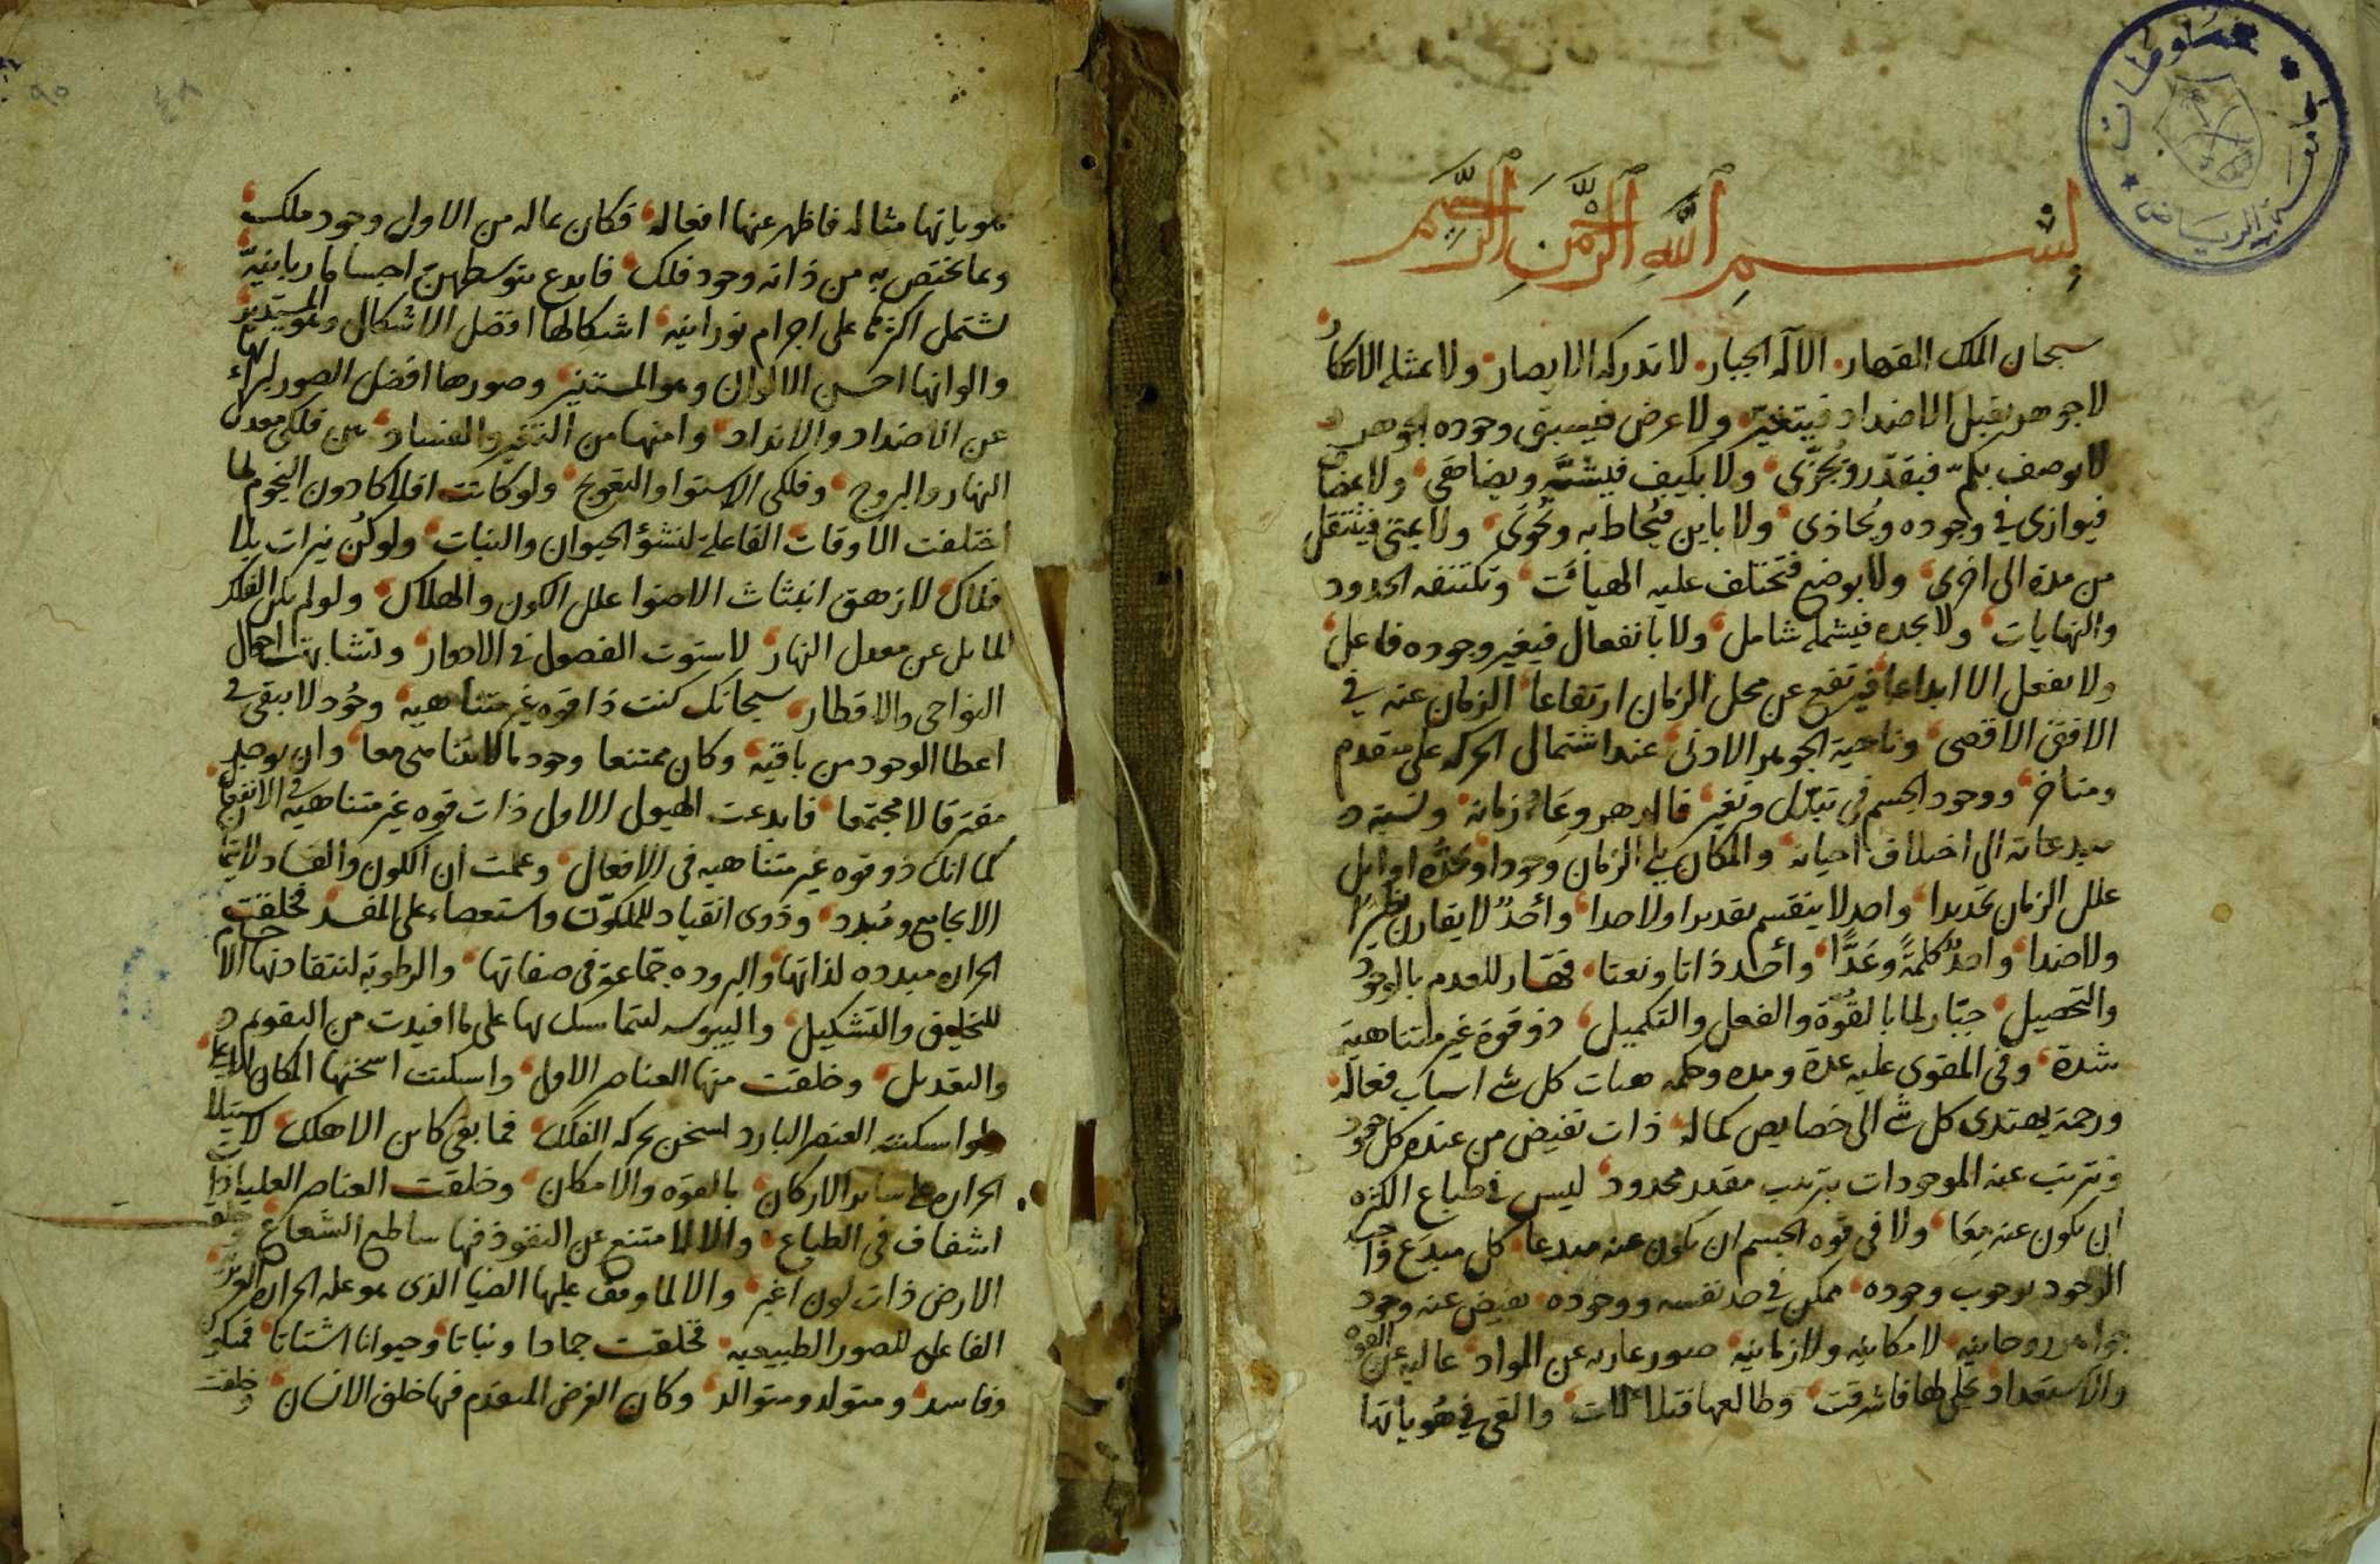 بسم الله الرحمن الرحيم
سبحان الملك القهار الاله الجبار لا تدركه الابصار ولا تمثله الافكار
لا جوهر يقبل الاضداد فيتغير ولا عرض فيسبق وجوده الجوهر
لا يوصف بكم فيقدر ويجزى ولا بكيف فيشبه ويضاهى ولا بمضاف
فيوازى في وجوده ويحاذى ولا باين فيحاط به ويحوى ولا بمتى فينتقل
من مدة الى اخرى ولا بوضع فتختلف عليه الهيات وتكتنفه الحدود
والنهايات ولا بجده فيشمله شامل ولا بانفعال فيغير وجوده فاعل
ولا بفعل الا ابداعا فيرتفع عن محل الزمان ارتفاعا الزمان عنه في
الافق الاقصى وناحية الجوهر الادنى عند اشتمال الحركة على متقدم
ومتاخر ووجود الجسم في تبدل وتغير فالدهر وعاء زمانه ونسبة
مبدعاته الى اختلاف احيانه والمكان يلي الزمان وجودا وتحده اوايل
علل الزمان تحديدا واحد لا ينقسم تقديرا ولا حدا وأحد لا يقارن نظيرا
ولا ضدا واحد كلمة وعدا وأحد ذاتا ونعتا قهار للعدم بالوجود
والتحصيل جبار لما بالقوة والفعل والتكميل ذو قوة غير متناهية
شدة وفي المقوى عليه عدة ومدة وحكمه هيات كل شي اسباب فعاله
ورحمة يهتدى كل شي الى خصايص كماله ذات تفيض من عنده كل جود
وترتب عنه الموجودات بترتيب مقدر محدود ليس في طباع الكثره
ان تكون عنه معا ولا في قوه الجسم ان يكون عنه مبدعا كل مبدع واجب
الوجود بوجوب وجوده ممكن في حد نفسه ووجوده تفيض عنه وجود
جواهر روحانيه لا مكانيه ولا زمانيه صور عاريه عن المواد عاليه عن القوه
والاستعداد تجلى لها فاشرقت وطالعها فتلالات والقى في هوياتها
هوياتها مثاله فاظهر عنها افعاله فكان بماله من الاول وجود ملك
وبما يختص به من ذاته وجود فلك فابدع بتوسطهن اجساما ربانية
تشتمل اكثرها على اجرام نورانيه اشكالها افضل الاشكال وهو المستدير
والوانها احسن الالوان وهو المستنير وصورها افضل الصور لبراءتها
عن الاضداد والانداد وامنها من التغير والفساد من فلكى معدل
النهار والبروج وفلكى الاستوا والتعويج ولو كانت افلاكا دون النجوم لما
اختلفت الاوقات الفاعلة لنشؤ الحيوان والنبات ولو كن نيرات بلا
افلاك لازهق انبثاث الاضوا علل الكون والهلاك ولو لم يكن الفلك
المايل عن معدل النهار لاستوت الفصول في الادوار وتشابهت احوال
النواحى والاقطار سبحانك كنت ذا قوه غير متناهيه وجود لا يبقى في
اعطا الوجود من باقية وكان ممتنعا وجود ما لا يتناهى معا وان يوجد
مفترقا لا مجتمعا فابدعت الهيولى الاولى ذات قوه غير متناهية في الانفعال
كما انك ذو قوه غير متناهيه في الافعال وعلمت ان الكون والفساد لا يتم
الا بجامع ومبدد وذوى انقياد للمكون واستعصاء على المفسد فخلقت
الحراره مبدده لذاتها والبروده جماعة في صفاتها والرطوبه لتنقاد بها الاجسام
للتخليق والتشكيل واليبوسه لتتماسك بها على ما افيدت من التقويم
والتعديل وخلقت منها العناصر الاول واسكنت اسخنها المكان الاعلى
ولو اسكنت العنصر البارد لسخن بحركه الفلك فما بقى كاين الا هلك لاستيلا
الحراره على ساير الاركان بالقوه والامكان وخلقت العناصر العليا ذات
اشفاف في الطباع والا لامتنع عن النفوذ فيها ساطع الشعاع وخلقت
الارض ذات لون اغبر والا لما وقف عليها الضيا الذى هو عله الحراره
الفاعله للصور الطبيعيه فخلقت جمادا ونباتا وحيوانا اشتاتا فمتكون
وفاسد ومتولد ومتوالد وكان الغرض المتقدم فيها خلق الانسان وخلقت